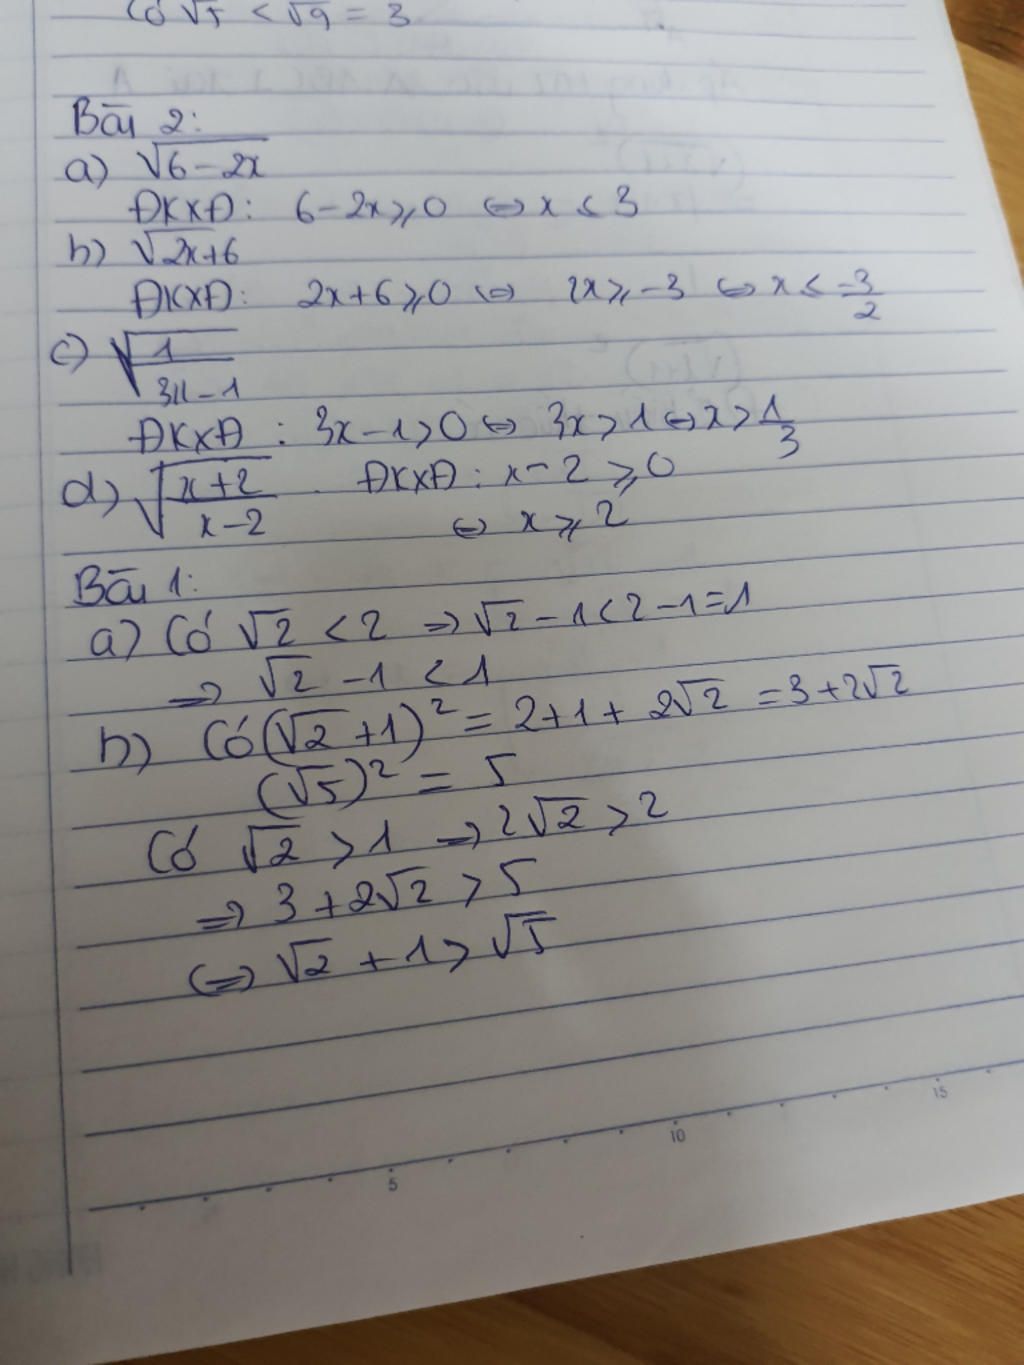 Có √5 < √9 = 3
Bài 2:
a) √6-2x
ĐKXĐ: 6-2x⩾0 ⇔ x ≤ 3
b) √2x+6
ĐKXĐ: 2x+6⩾0 ⇔ 2x⩾-3 ⇔ x ≤ -3/2
c) √1/3x-1
ĐKXĐ: 3x-1>0 ⇔ 3x>1 ⇔ x>1/3
d) √x+2/x-2 ĐKXĐ: x-2 ⩾0
⇔ x⩾2
Bài 1:
a) Có √2 <2 ⇒ √2-1<2-1=1
⇒ √2-1 <1
b) Có (√2+1)² = 2+1+ 2√2 = 3+2√2
(√5)² = 5
Có √2 >1 ⇒ 2√2 >2
⇒ 3+2√2 > 5
⇔ √2 +1> √5
5 10 15